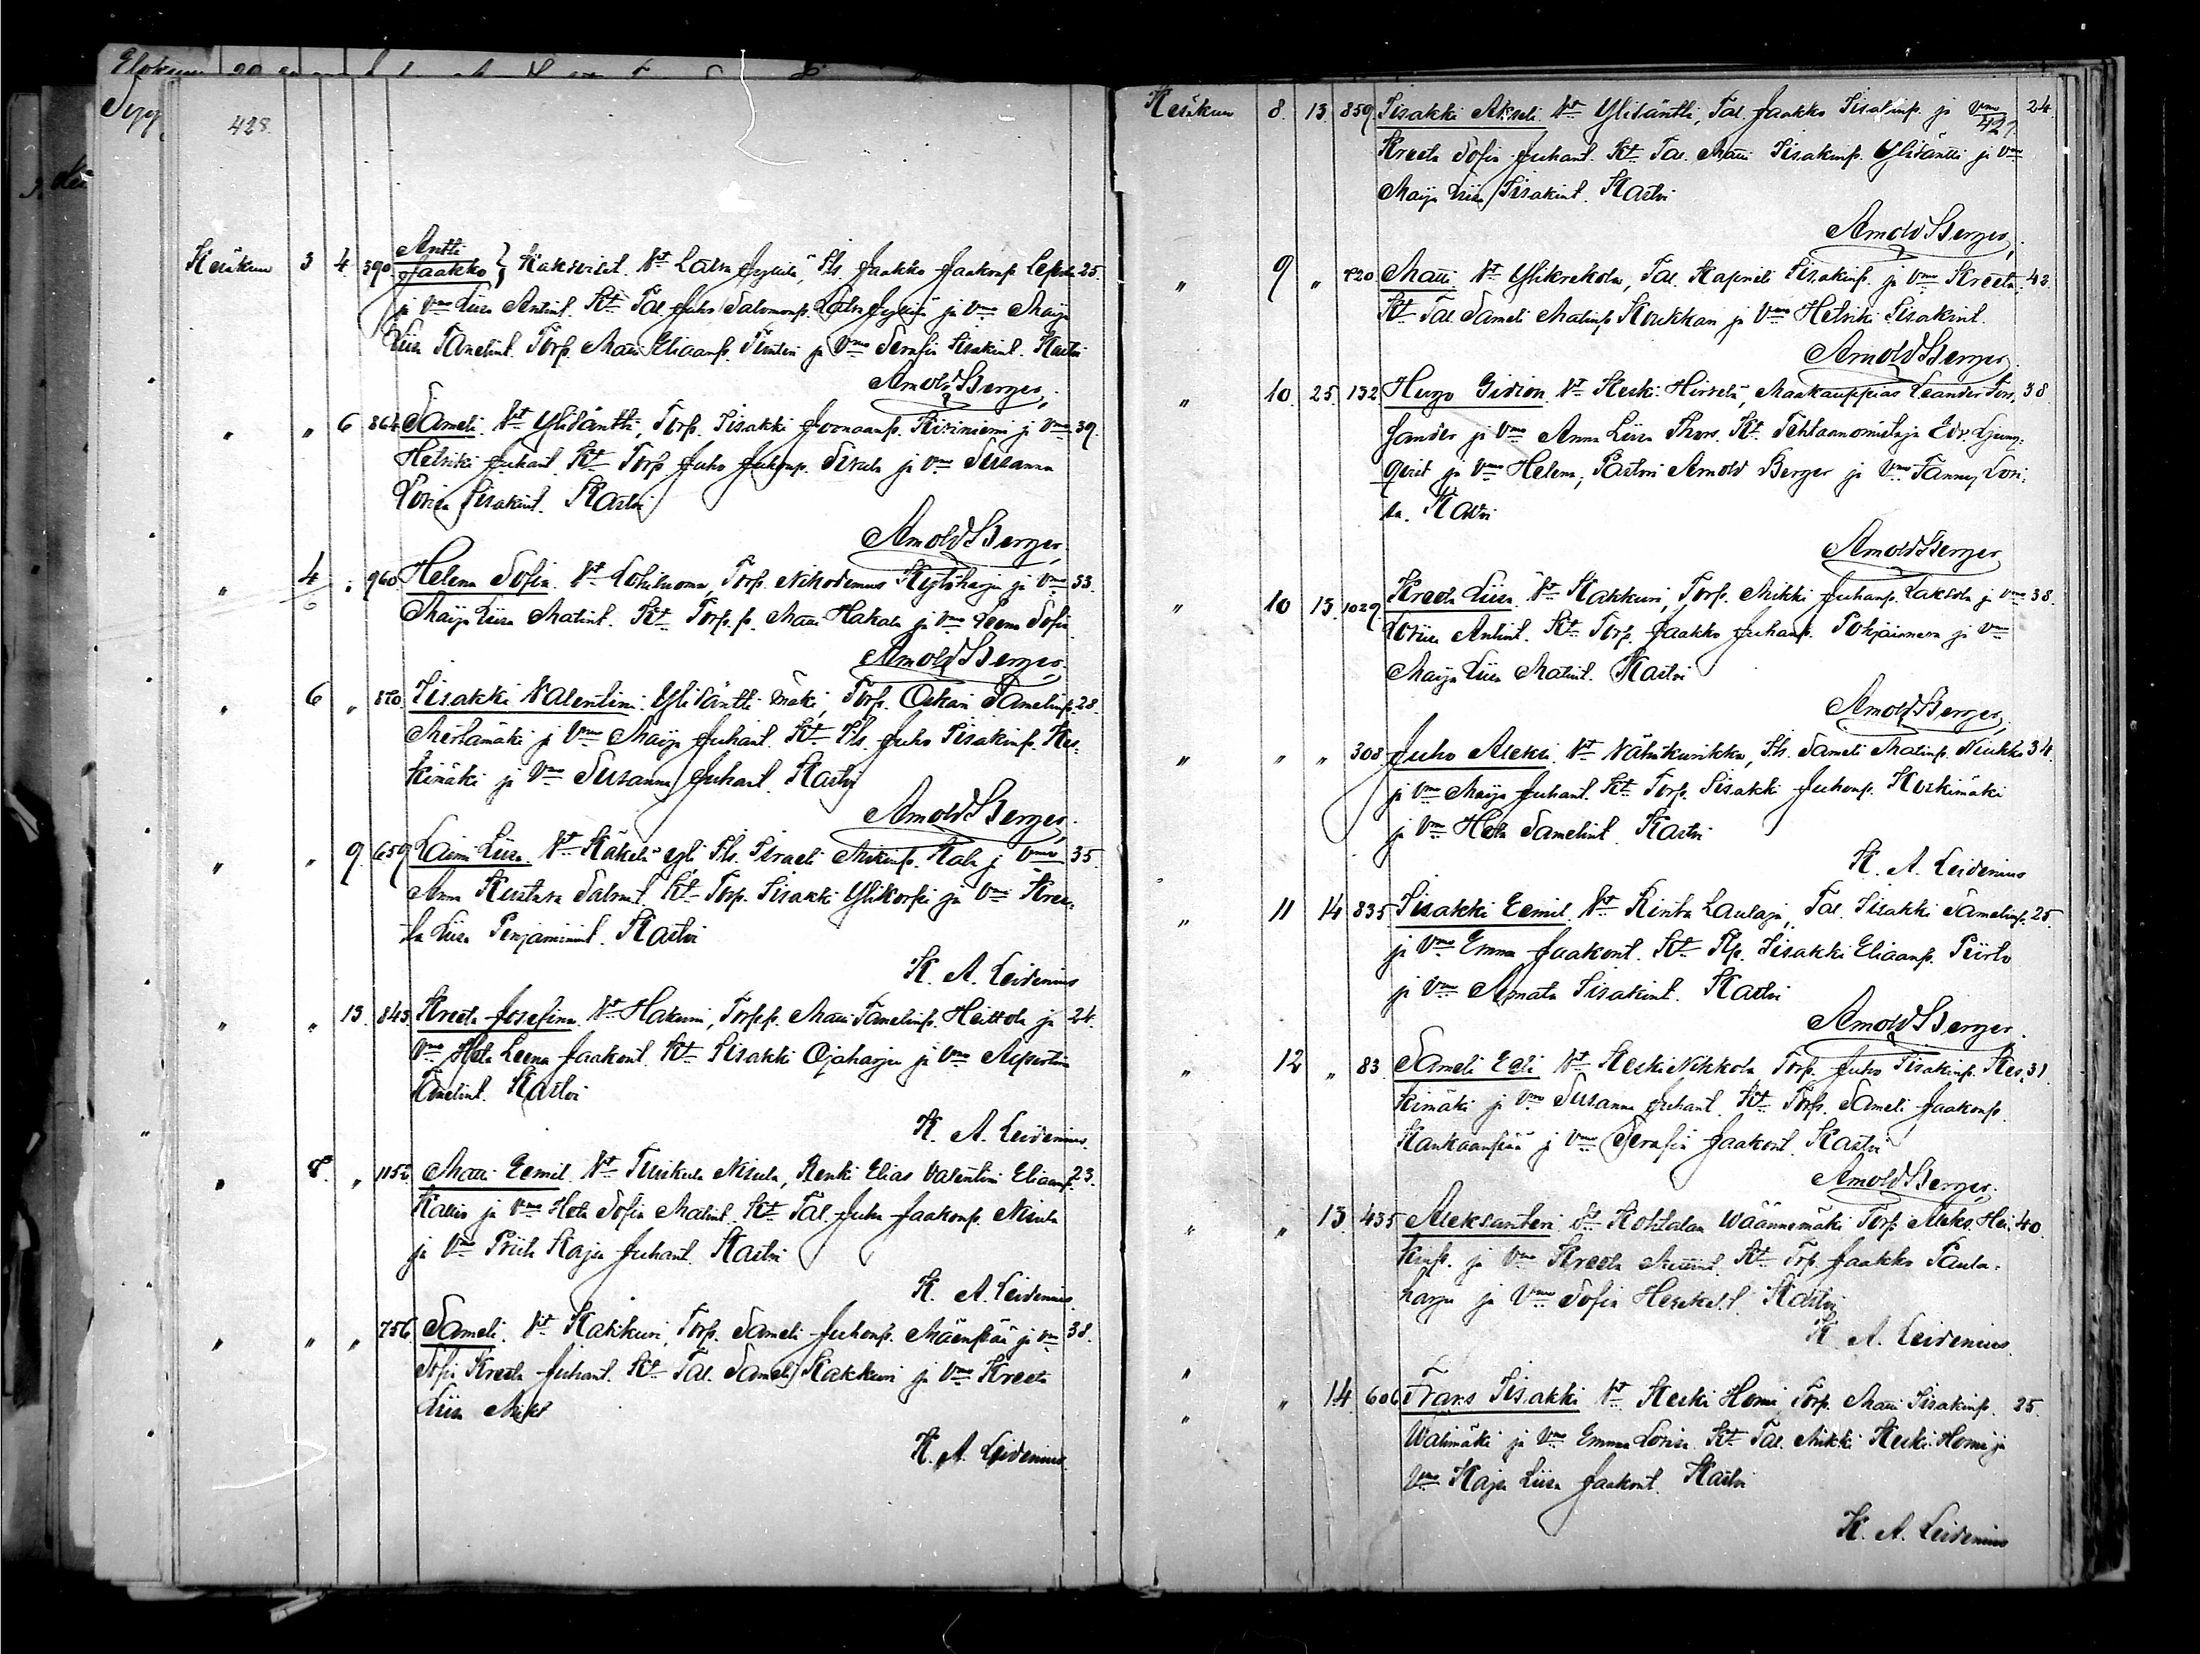 428.
Kesäkuu 3 4 390. Antti
Jaakko } Kaksoiset. Vt Latva Jyllilä, Its. Jaakko Jaakonp. 25.
ja Vmo Liisa Antint. Kt. Tal. Juho Salomonp. Latva ja Vmo Maija
Liisa Tanelint. Torp. Matti Eliaanp. ja Vmo Serafia Iisakint. Kastoi
Arnold Berger.
" " 6 864. Sameli. Vt Ylisäntti, Torp. Iisakki Joonaanp. Kiviniemi ja Vmo 39.
Helviki Juhant. Kt. Torp. Juho Juhonp. Sirula ja Vmo Susanna
Lovisa Iisakint. Kastoi
Arnold Berger.
" 4 " 960. Helena Sofia. Vt Lohiluoma, Torp. Nikodemus ja Vmo 33.
6
Maija Liisa Matint. Kt. Torp. p. Matti Hakala ja Vmo Leena Sofia
Arnold Berger.
" 6 " 870. Iisakki Valentini. Ylisäntti mäki, Torp. Oskari Samelinp. 28.
Metsämäki ja Vmo Maija Juhant. Kt. Its. Juho Iisakinp. Kes-
kimäki ja Vmo Susanna Juhant. Kastoi
Arnold Berger.
" " 9. 659. Laimi Liisa. Vt Käkelä Its. Israeli Mikinp. ja Vmo 35.
Anna Kustava Salomt. Kt. Torp. Iisakki Ylikorpi ja Vmo Kree-
ta Liisa Penjamint. Kastoi
K. A. Leidenius
" " 13. 843. Kreeta Josefina. Vt Hakuni, Torp. p. Matti Tanelinp. Heittola ja 24.
Vmo Heta Leena Jaakont. Kt. Iisakki Ojaharju ja Vmo
Tanelint. Kastoi
K. A. Leidenius.
" 8. " 1152. Matti Eemil. Vt Nisula, Renki Elias Valentini Eliaanp. 23.
ja Vmo Heta Sofia Matint. Kt. Tal. Juha Jaakonp. Nisula
ja Vmo Priita Kaja Juhant. Kastoi
K. A. Leidenius.
" " " 756. Sameli. Vt Kakkuri, Torp. Sameli Juhonp. Mäenpää ja Vmo 38.
Sofia Kreeta Juhant. Kt. Tal. Sameli Kakkuri ja Vmo Kreeta
Liisa
K. A. Leidenius.
Kesäkuu 8. 13. 859. Iisakki Akseli. Vt Ylisäntti, Tal. Jaakko Iisakinp. ja Vmo 24.
427
Kreeta Sofia Juhant. Kt. Tal. Matti Iisakinp. Ylisäntti ja Vmo
Maija Liisa Iisakint. Kastoi
Arnold Berger.
" 9 " 720. Matti Vt Ylikrekola, Tal. Kaprieli Iisakinp. ja Vmo Kreeta. 42.
Kt. Tal. Sameli Matinp. Koukkari ja Vmo Helviki Iisakint.
Arnold Berger.
" 10. 25. 132. Hugo Gidion. Vt Keski Hirvelä, Maakauppias Leander Fors- 38
sander ja Vmo Anna Liisa Thors. Kt. Tehtaanomistaja Edv. Ljung-
qvist ja Vmo Helena, Pastori Arnold Berger ja Vmo Fanny Lovi-
sa. Kastoi
Arnold Berger
" 10 13. 1029. Kreeta Liisa. Vt Kakkuri, Torp. Mikki Juhanp. Laksola ja Vmo 38.
Loviisa Antint. Kt. Torp. Jaakko Juhanp. ja Vmo
Maija Liisa Matint. Kastoi
Arnold Berger.
" " " 308. Juho Aleksi. Vt Vähäkurikka, Its. Sameli Matinp. 34.
ja Vmo Maija Juhant. Kt. Torp. Iisakki Juhonp. Koskimäki
ja Vmo Heta Samelint. Kastoi
K. A. Leidenius
" 11 14 835. Iisakki Eemil. Vt Rinta Laulaja, Tal. Iisakki Samelinp. 25.
ja Vmo Emma Jaakont. Kt. Iisakki Eliaanp. Piirto
ja Vmo Amata Iisakint. Kastoi
Arnold Berger.
" 12 " 83. Sameli Eeli. Vt Keski Nikkola Torp. Juho Iisakinp. Kes- 31.
kimäki ja Vmo Susanna Juhant. Kt. Torp. Sameli Jaakonp.
Kankaanpää ja Vmo Serafia Jaakont. Kastoi
Arnold Berger.
" " 13. 435. Aleksanteri Vt Kohtalan Wäännemäki Torp. Aleks. Hei- 40.
kinp. ja Vmo Kreeta Kt. Trp. Jaakko Paula-
harju ja Vmo Sofia Kastoi
K. A. Leidenius.
" " 14. 606. Frans Iisakki Vt Keski Homi Torp. Matti Iisakinp. 25.
Walimäki ja Vmo Emma Lovisa. Kt. Tal. Mikki Keski-Homi ja
Vmo Kaja Liisa Jaakont. Kastoi
K. A. Leidenius